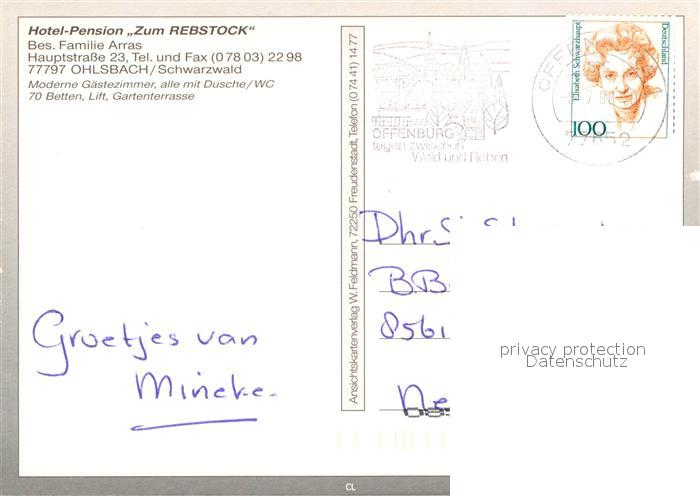 Hotel-Pension „Zum REBSTOCK“
Bes. Familie Arras
Hauptstraße 23, Tel. und Fax (0 78 03) 22 98
77797 OHLSBACH/Schwarzwald
Moderne Gästezimmer, alle mit Dusche/WC
70 Betten, Lift, Gartenterrasse
Ansichtskartenverlag W. Feldmann, 72250 Freudenstadt, Telefon (0 74 41) 14 77
OFFENBURG
tagen zwischen
Wald und Reben
77652
Elisabeth Schwarzhaupt
Deutschland
100
Dhr.
BB
8561
Ne
Groetjes van
Mineke.
privacy protection
Datenschutz
CL